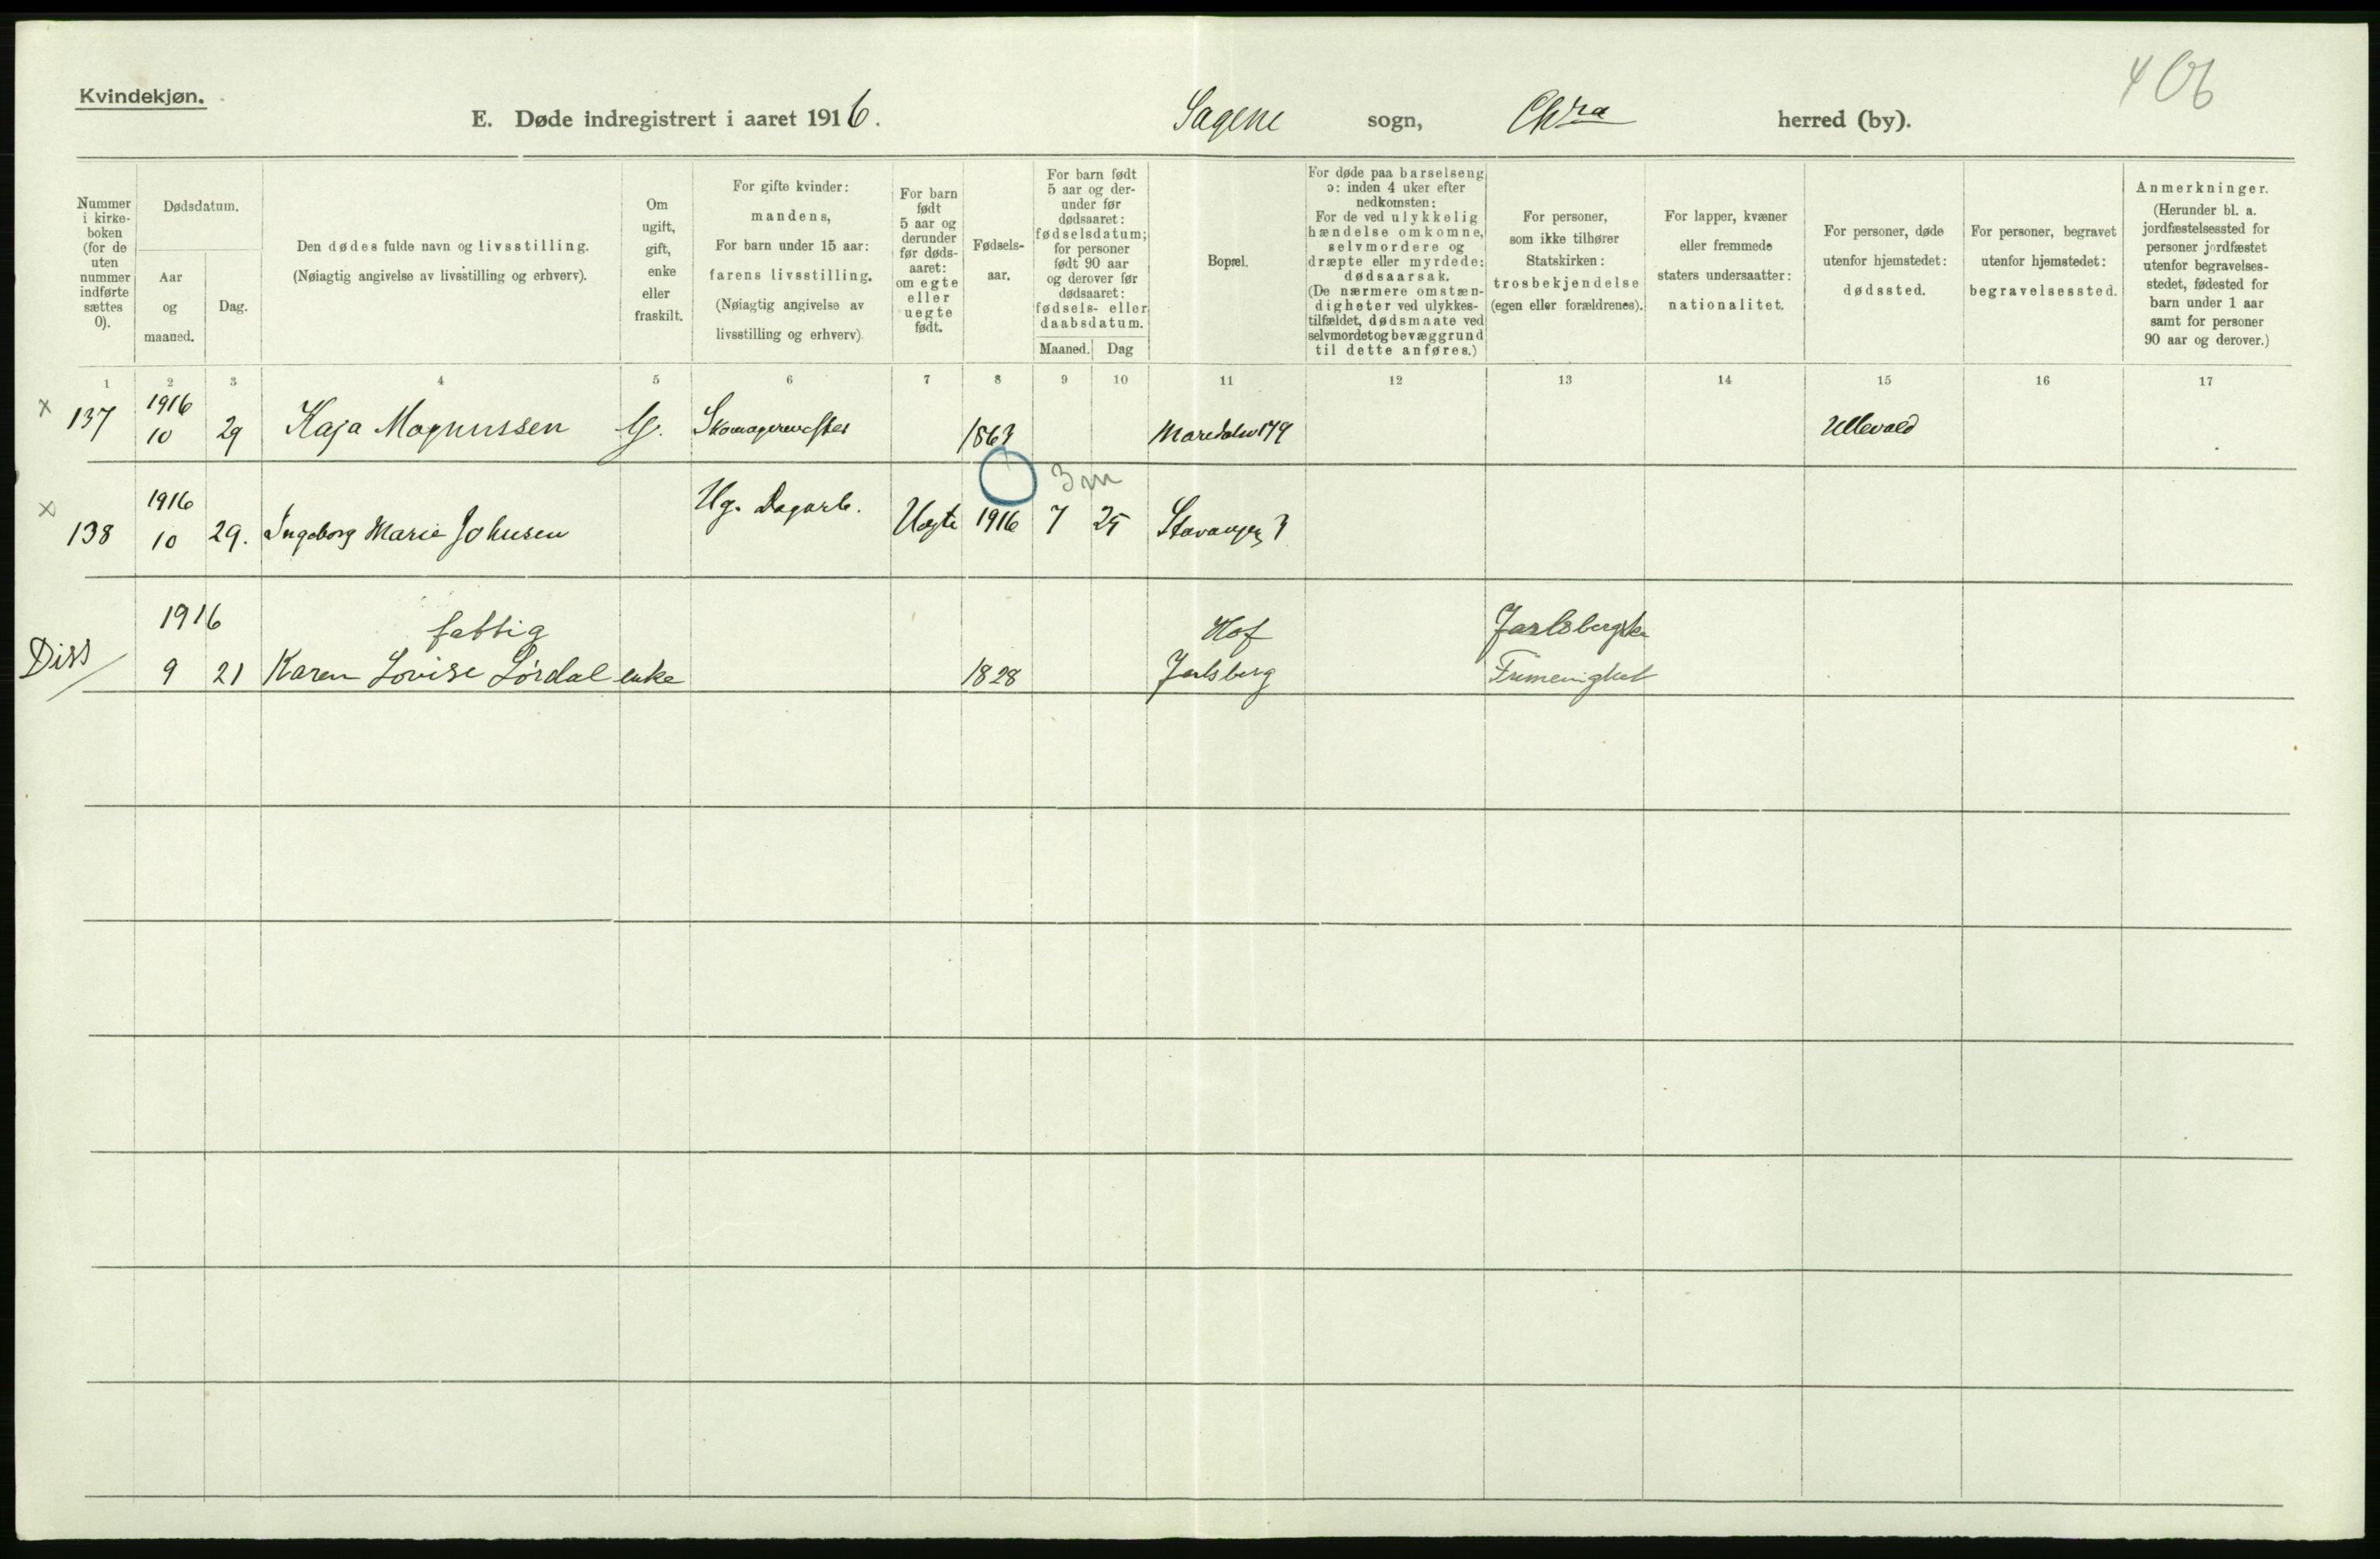 406
Kvindekjøn.
E. Døde indregistrert i aaret 1916. Sagene sogn, Chra herred (by).
Nummer i kirke- boken (for de uten nummer indførte sættes 0).
Dødsdatum.
Aar og maaned.
Dag.
Den dødes fulde navn og livsstilling.
(Nøiagtig angivelse av livsstilling og erhverv).
Om ugift, gift, enke eller fraskilt.
For gifte kvinder:
mandens,
For barn under 15 aar:
farens livsstilling.
(Nøiagtig angivelse av
livsstilling og erhverv).
For barn født 5 aar og derunder før døds- aaret: om egte eller uegte født.
Fødsels- aar.
For barn født 5 aar og der- under før dødsaaret: fødselsdatum; for personer født 90 aar og derover før dødsaaret: fødsels- eller daabsdatum.
Maaned. Dag
Bopæl.
For døde paa barselseng
ɔ: inden 4 uker efter
nedkomsten:
For de ved ulykkelig
hændelse omkomne,
selvmordere og
dræpte eller myrdede:
dødsaarsak.
(De nærmere omstæn-
digheter ved ulykkes-
tilfældet, dødsmaate ved
selvmordet og bevæggrund
til dette anføres.)
For personer,
som ikke tilhører
Statskirken:
trosbekjendelse
(egen eller forældrenes).
For lapper, kvæner
eller fremmede
staters undersaatter:
nationalitet.
For personer, døde
utenfor hjemstedet:
dødssted.
For personer, begravet
utenfor hjemstedet:
begravelsessted.
Anmerkninger.
(Herunder bl. a.
jordfæstelsessted for
personer jordfæstet
utenfor begravelses-
stedet, fødested for
barn under 1 aar
samt for personer
90 aar og derover.)
1 2 3 4 5 6 7 8 9 10 11 12 13 14 15 16 17
x 137 1916 10 29 Kaja Magnussen G. Skomagermester 1863 Maridalsv 179 Ullevold
3 m
x 138 1916 10 29. Ingeborg Marie Johnsen Ug. Dagarb. Uegte 1916 7 25 Stavangerg 3
1916 fattig Hof Jarlsbergske
Diss 9 21 Karen Lovise Lørdal enke 1828 Jarlsberg Frimenighet